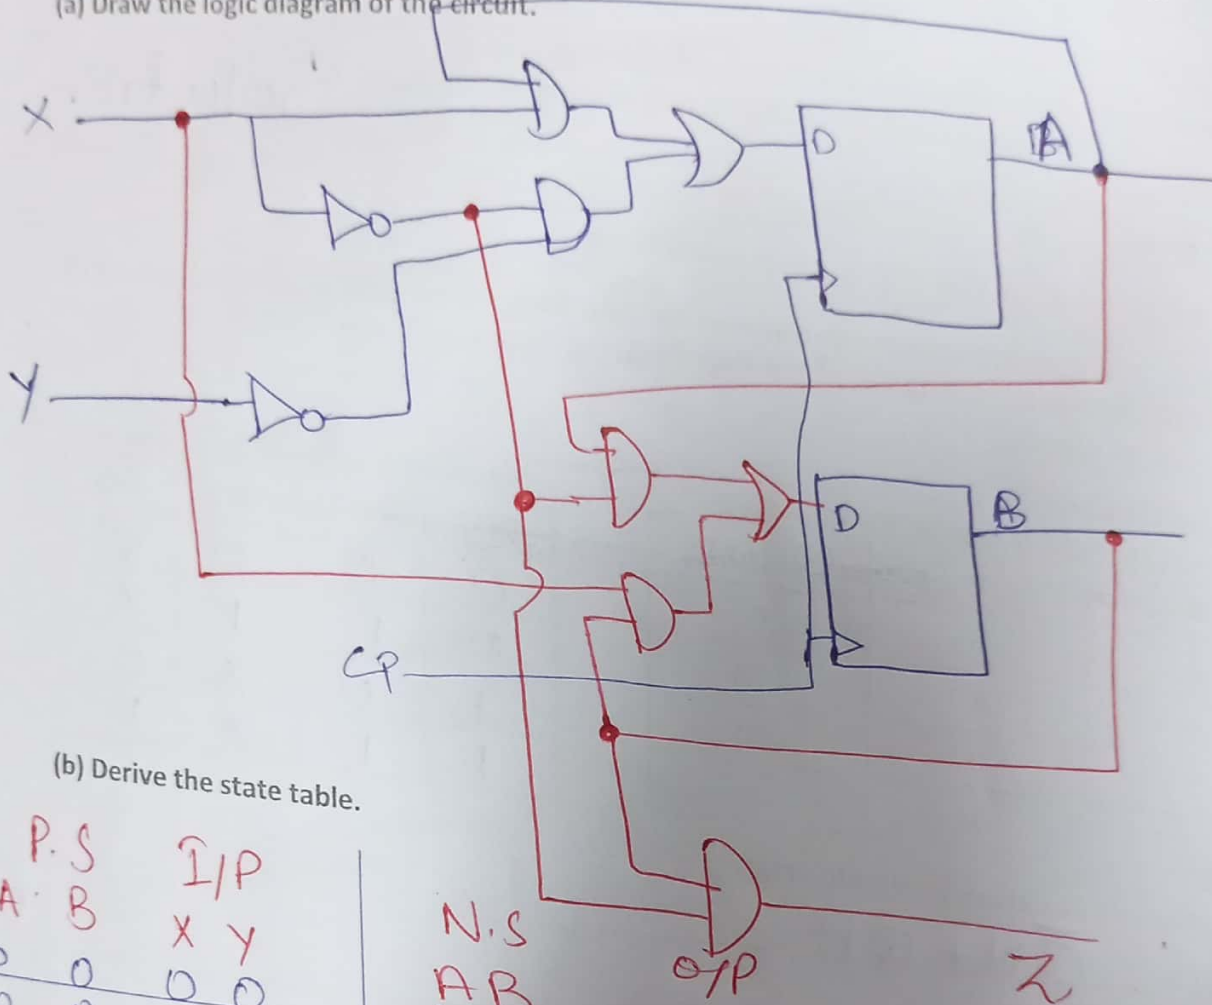 (a) Draw the logic diagram of the circuit.
X
D
A
Y
D
B
CP
(b) Derive the state table.
P.S I/P
A B X Y N.S
0 0 0 0 A B O/P Z